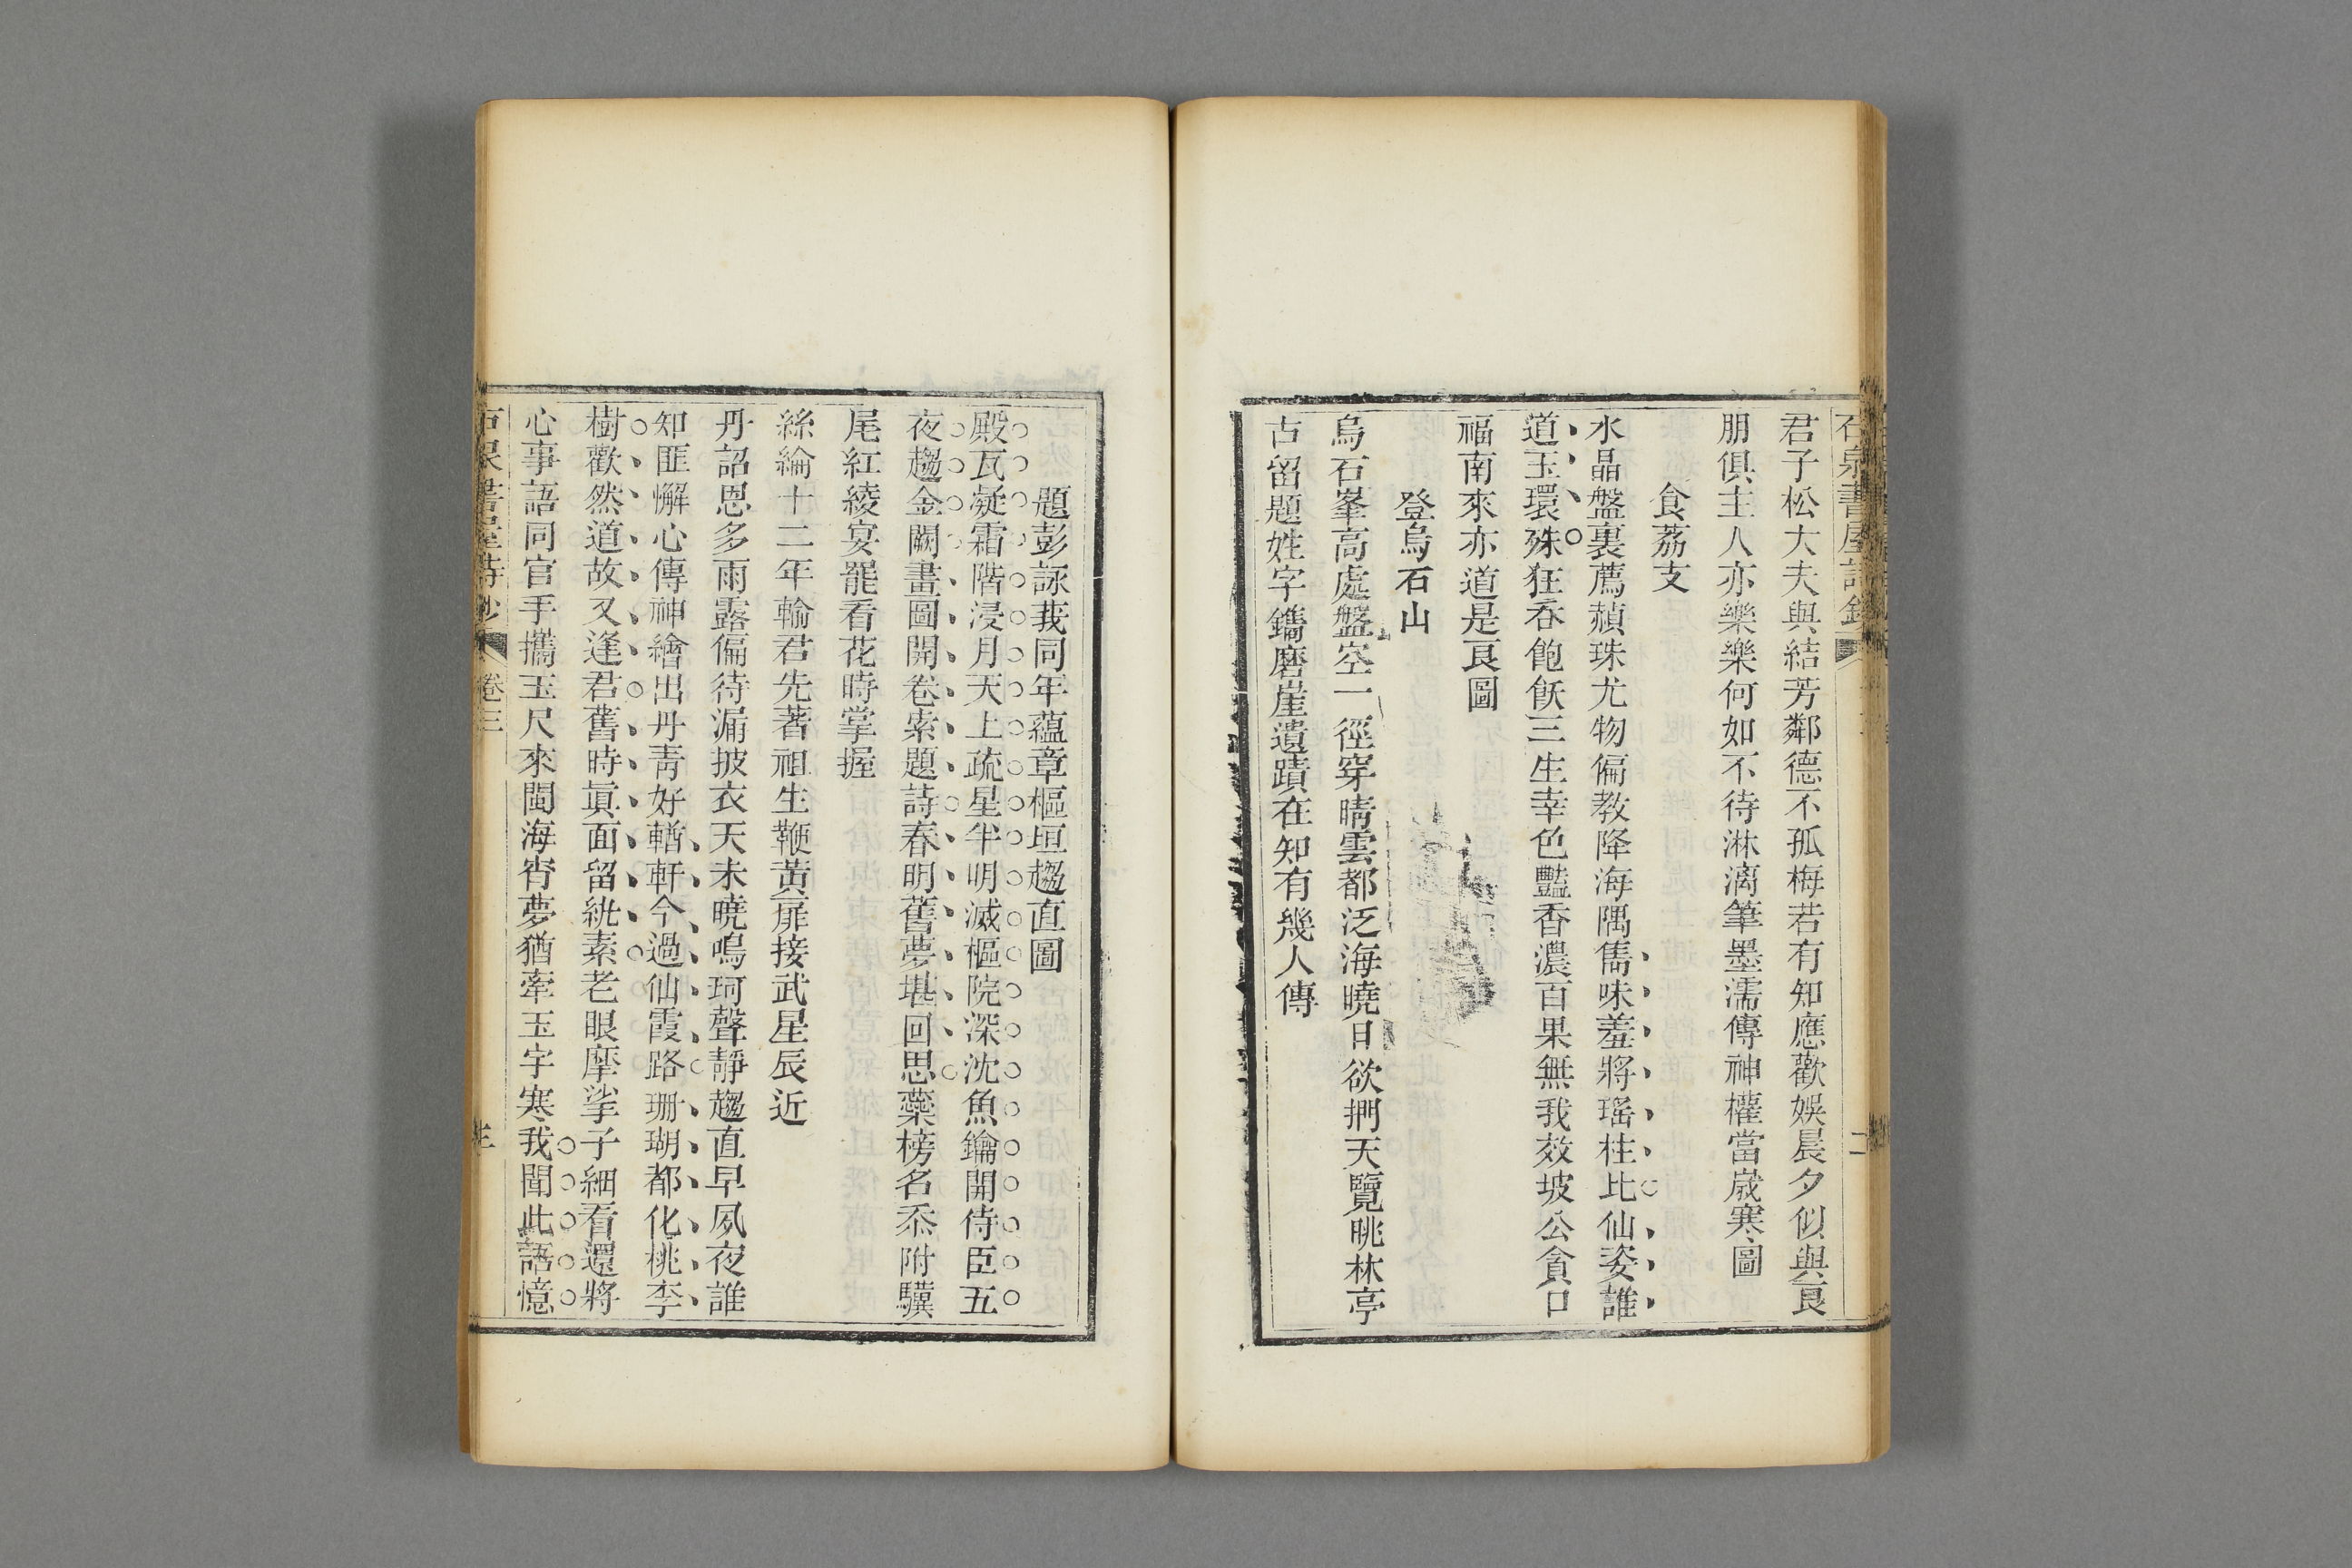 石泉書屋詩鈔
二
君子松大夫與結芳鄰德不孤梅若有知應歡娛晨夕似與良
朋俱主人亦樂樂何如不待淋漓筆墨濡傳神權當歲寒圖
食荔支
水晶盤裏薦頳珠尤物偏教降海隅雋味羞將瑤柱比仙姿誰
道玉環殊狂吞飽飫三生幸色豔香濃百果無我效坡公貪口
福南來亦道是良圖
登烏石山
烏石峯高處盤空一徑穿晴雲都泛海曉日欲捫天覽眺林亭
古留題姓字鐫磨崖遺蹟在知有幾人傳
題彭詠莪同年蘊章樞垣趨直圖
殿瓦凝霜階浸月天上疏星半明滅樞院深沈魚鑰開侍臣五
夜趨金闕畫圖開卷索題詩春明舊夢堪回思蘂榜名忝附驥
尾紅綾宴罷看花時掌握
絲綸十二年輸君先著祖生鞭黃扉接武星辰近
丹詔恩多雨露偏待漏披衣天未曉鳴珂聲靜趨直早夙夜誰
知匪懈心傳神繪出丹青好輶軒今過仙霞路珊瑚都化桃李
樹歡然道故又逢君舊時眞面留絖素老眼摩挲子細看還將
心事語同官手攜玉尺來閩海宵夢猶牽玉宇寒我聞此語憶
石泉書屋詩鈔
卷三
三